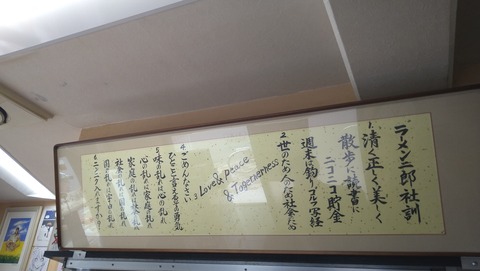 ラーメン二郎社訓
1. 清く正しく美しく
散歩に読書に
ニコニコ貯金
週末に釣りゴルフ写経
2. 世のため人のため社会のため
3. Love & peace
& Togetherness
4. ごめんなさい
ひとこと言えるその勇気
5. 味の乱れは心の乱れ
心の乱れは家庭の乱れ
家庭の乱れは社会の乱れ
社会の乱れは国の乱れ
国の乱れは宇宙の乱れ
6. ニンニク入れますか?